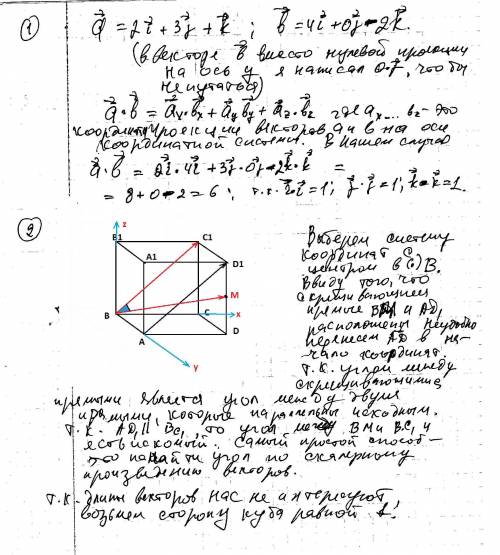 ① a = 2i + 3j + k ; b = 4i + 0j - 2k.
(в векторе b вместо нулевой проекции
на ось y я написал 0·j, чтобы
не путаться)
a·b = ax·bx + ay·by + az·bz где ax ... bz - это
координаты проекции векторов a и b на оси
координатной системы. В нашем случае
a·b = 2i·4i + 3j·0j - 2k·k =
= 8 + 0 - 2 = 6 ; т.к. i·i = 1; j·j = 1; k·k = 1.
②
z
B1 C1
A1 D1
M
B C x
A D
y
Выберем систему
координат с
центром в (·) B.
Ввиду того, что
скрещивающиеся
прямые BM и AD1
расположены неудобно
перенесем AD1 в на-
чало координат.
Т.к. углом между
скрещивающимися
прямыми является угол между двумя
прямыми, которые параллельны исходным.
Т.к. AD1 || BC1, то угол между BM и BC1 и
есть искомый. Самый простой способ -
это найти угол по скалярному
произведению векторов.
Т.к. длины векторов нас не интересуют,
возьмем сторону куба равной 1.